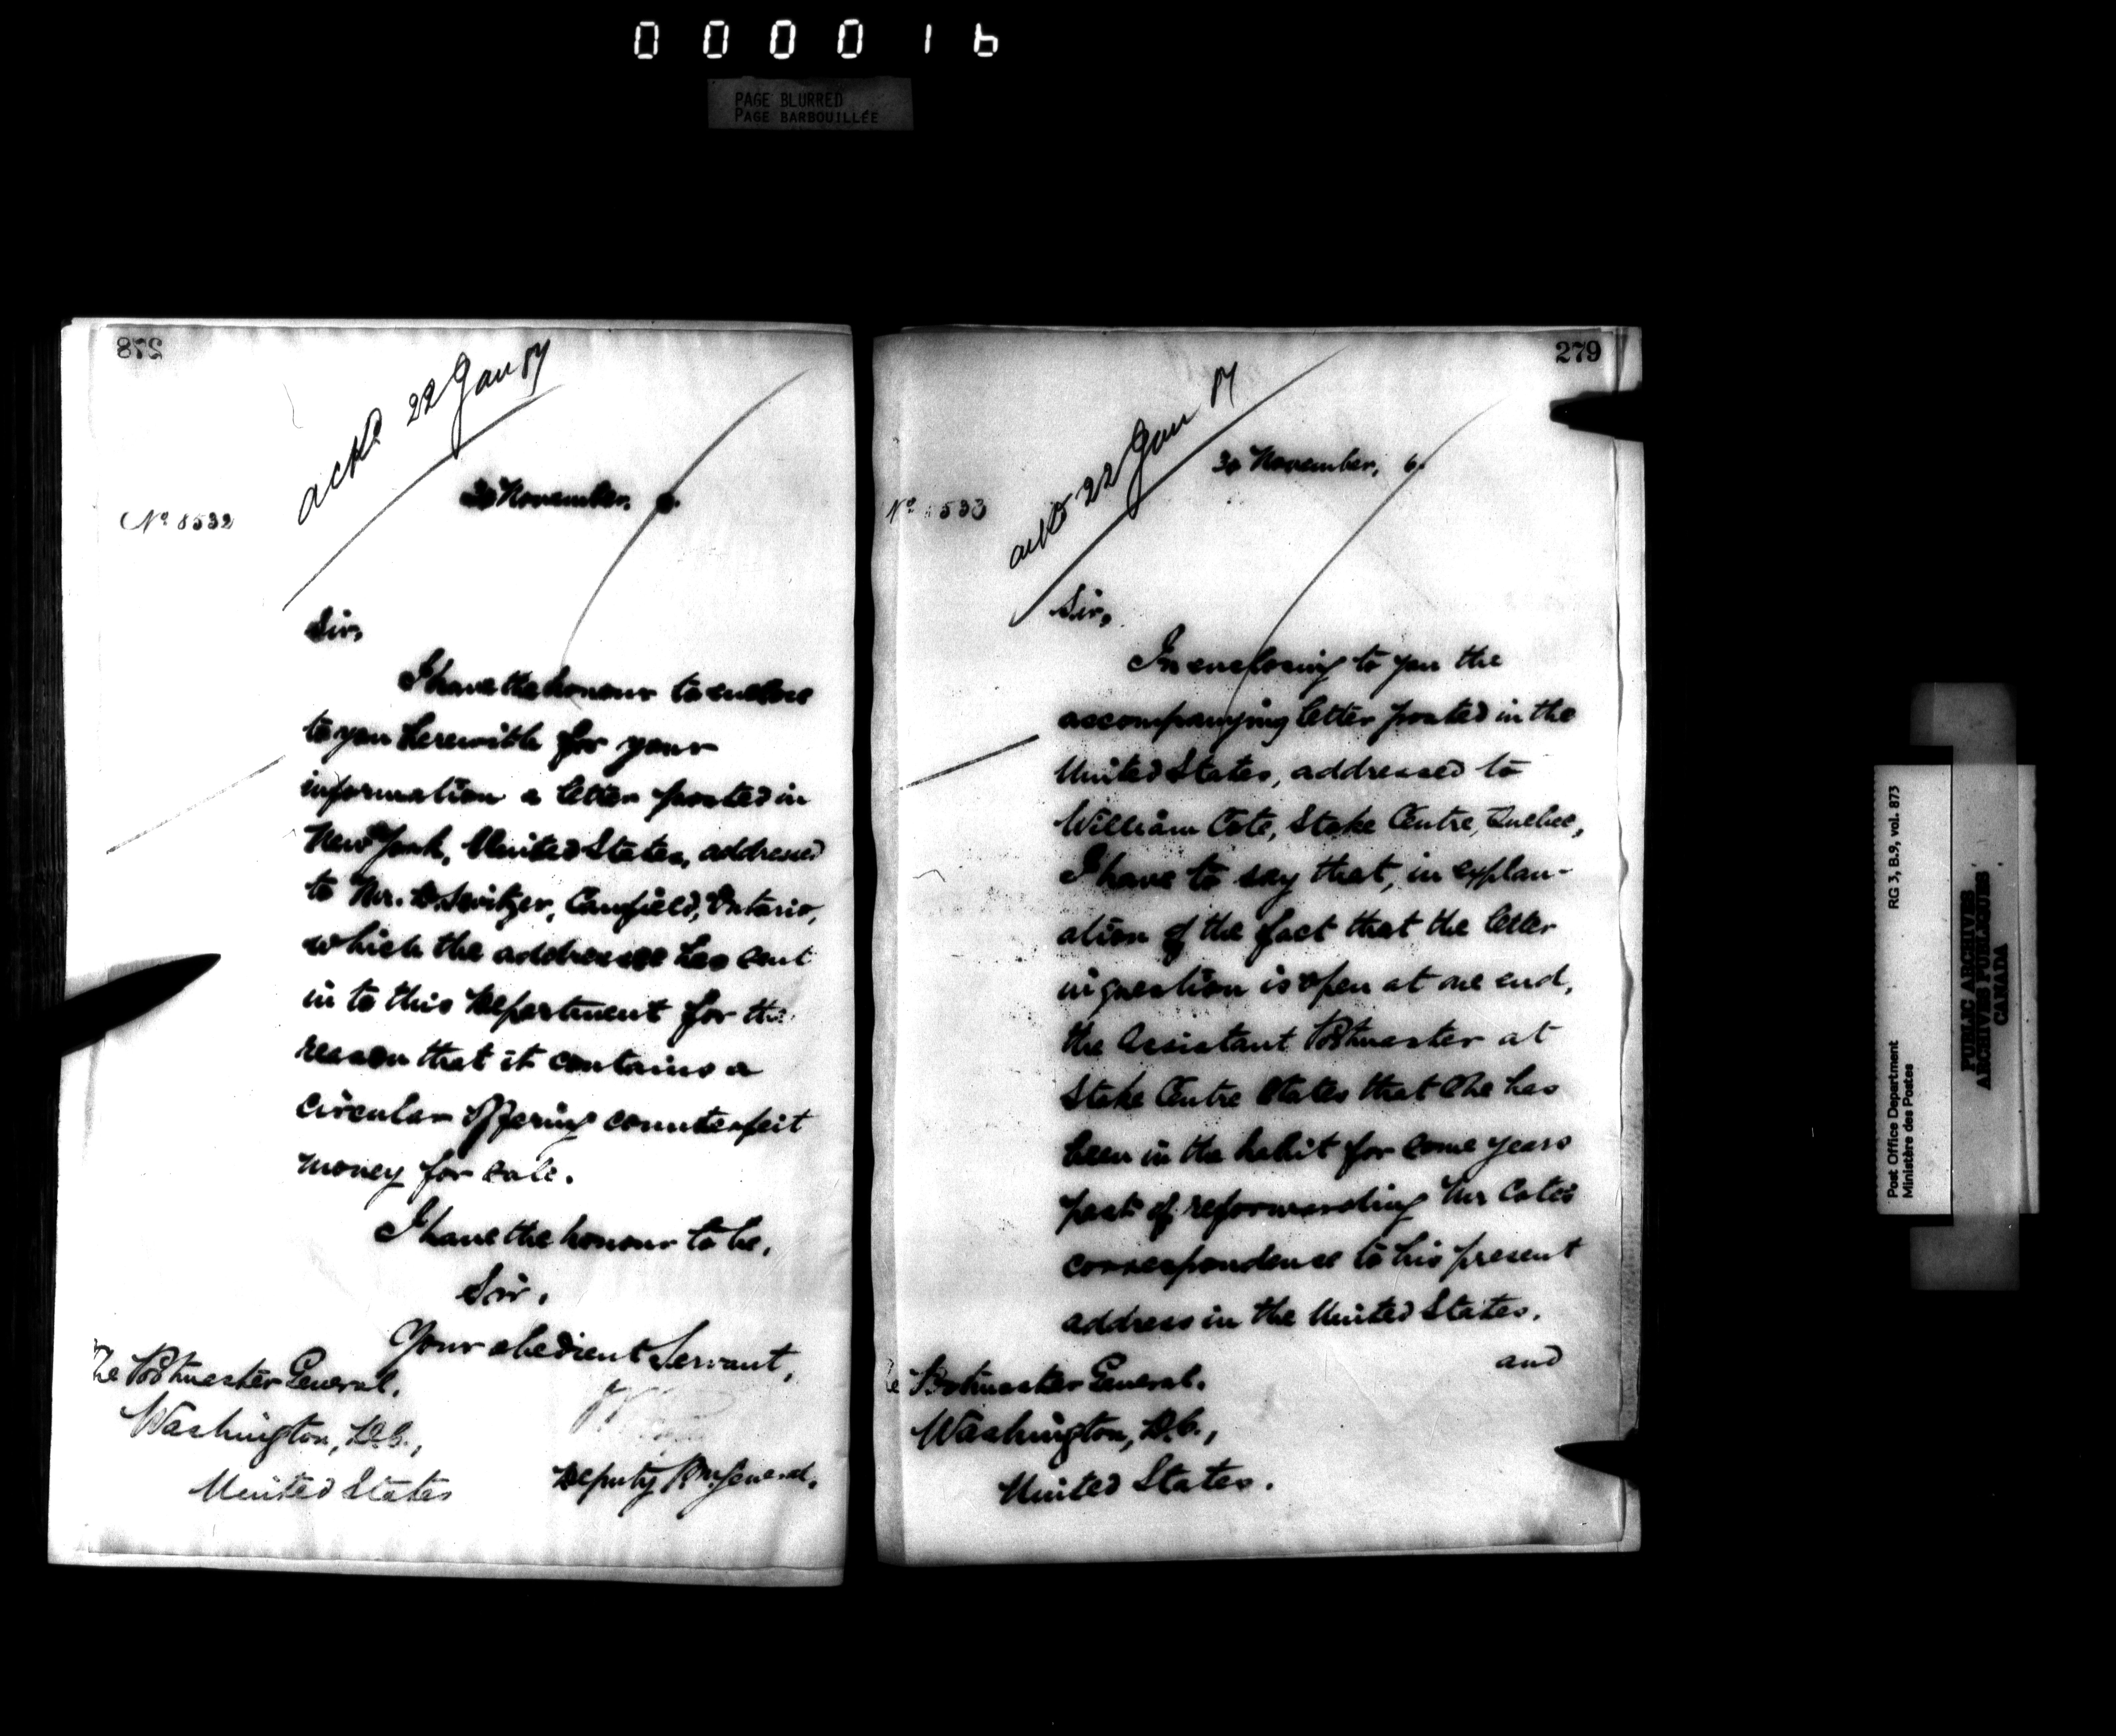 000016
PAGE BLURRED
PAGE BARBOUILLÉE
278
ackd 22 Jan 87
30 November, 6.
No 8532
Sir,
I have the honour to enclose
to you herewith for your
information a letter posted in
New York, United States, addressed
to Mr. D. Switzer, Canfield, Ontario,
which the addressee has sent
in to this Department for the
reason that it contains a
circular offering counterfeit
money for sale.
I have the honour to be,
Sir,
Your obedient Servant,
The Postmaster General,
Washington, D.C.,
United States
Deputy P.M. General.
279
ackd 22 Jan 87
30 November, 6.
No 8533
Sir,
In enclosing to you the
accompanying letter posted in the
United States, addressed to
William Cote, Stoke Centre, Quebec,
I have to say that, in explan-
ation of the fact that the letter
in question is open at one end,
the Assistant Postmaster at
Stoke Centre states that she has
been in the habit for some years
past of reforwarding Mr Cote's
correspondence to his present
address in the United States.
and
Postmaster General,
Washington, D.C.,
United States.
RG 3, B.9, vol. 873
Post Office Department
Ministère des Postes
PUBLIC ARCHIVES
ARCHIVES PUBLIQUES
CANADA